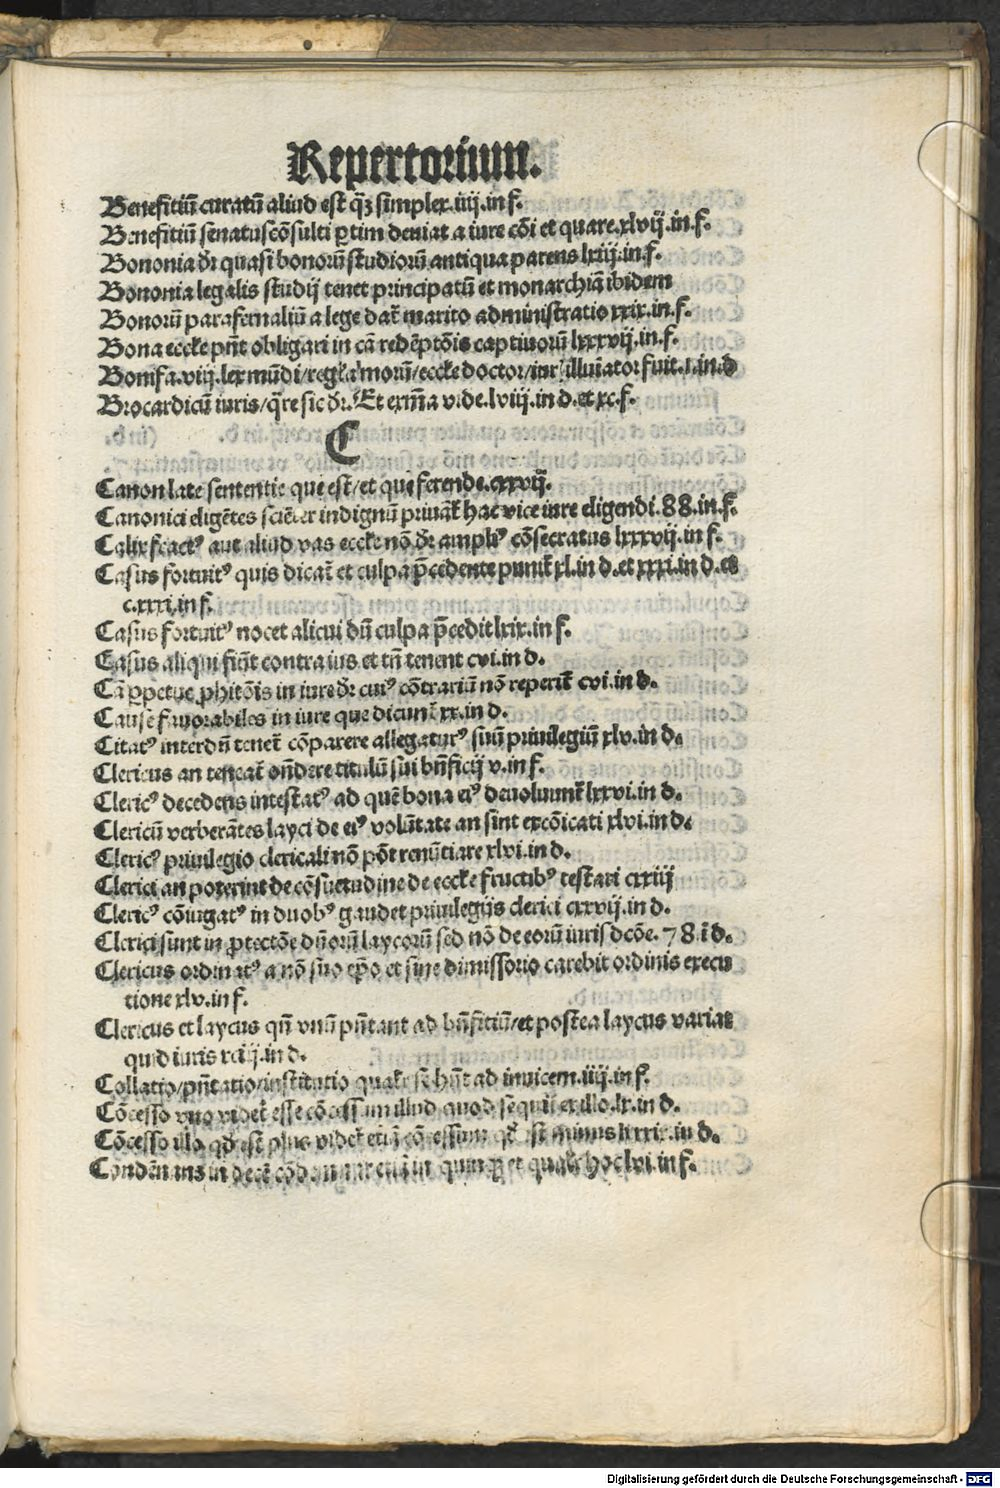 Repertorium.
Benefitiū curatū aliud est q̄ʒ simplex.iiij.in f.
Benefitiū senatuscōsulti ꝑtim deuiat a iure cōi et quare.xlvij.in.f.
Bononia dr̄ quasi bonorū studiorū antiqua parens lxiij.in.f.
Bononia legalis studij tenet principatū et monarchiā ibidem
Bonorū parafernaliū a lege dat̄ marito administratio xxix.in.f.
Bona eccl̄e pn̄t obligari in cā redēptōis captiuorū lxxxvij.in.f.
Bonifa.viij.lex mūdi/regl̄a morū/eccl̄e doctor/iur illuiator fuit.1.in.d
Brocardicū iuris/q̄re sic dr̄. Et exm̄a vide.lviij.in d.et xc.f.
C
Canon late sententie que est/et qui ferende.cxxvij.
Canonici eligētes sciēter indignū priuāt̄ hac vice iure eligendi.88.in.f.
Calix fractꝰ aut aliud vas eccl̄e nō dr̄ ampliꝰ cōsecratus lxxxvij.in f.
Casus fortuitꝰ quis dicat̄ et culpa p̄cedente punit̄ xl.in d.et xxxi.in d.et
c.xxxi.in f.
Casus fortuitꝰ nocet alicui dū culpa p̄cedit lxix.in f.
Casus aliqui fiūt contra ius et tn̄ tenent cvi.in d.
Cā ꝑpetue ꝓhitōis in iure dr̄ cuiꝰ cōtrariū nō reperit̄ cvi.in d.
Cause fauorabiles in iure que dicunt̄ xx.in d.
Citatꝰ interdū tenet̄ cōparere allegaturꝰ suū priuilegiū xlv.in d.
Clericus an teneat̄ on̄dere titulū sui bn̄ficij v.in f.
Clericꝰ decedens intestatꝰ ad quē bona eiꝰ deuoluunt̄ lxxvi.in d.
Clericū verberātes layci de eiꝰ volūtate an sint excōicati xlvi.in d.
Clericꝰ priuilegio clericali nō pōt renūtiare xlvi.in d.
Clerici an poterint de cōsuetudine de eccl̄e fructibꝰ testari cxxiij
Clericꝰ cōiugatꝰ in duobꝰ gaudet priuilegijs clerici cxxvij.in d.
Clerici sunt in ꝓtectōe dn̄orū laycorū sed nō de eorū iuris dcōe.78 ī d.
Clericus ordinatꝰ a nō suo epō et sine dimissorio carebit ordinis execu
tione xlv.in f.
Clericus et laycus qn̄ vnū pn̄tant ad bn̄fitiū/et postea laycus variat
quid iuris in d.
Collatio/pn̄tatio/institutio qualr̄ se hn̄t ad inuicem.iiij.in f.
Cōcesso vno videt̄ esse cōcessum illud quod sequit̄ ex illo.lx.in d.
Cōcesso illo qd̄ est plus videt̄ etiā cōcessum qd̄ est minus lxxix.in d.
in decē in quinqꝫ et qualr̄ hoc lvi.in f.
Digitalisierung gefördert durch die Deutsche Forschungsgemeinschaft - DFG